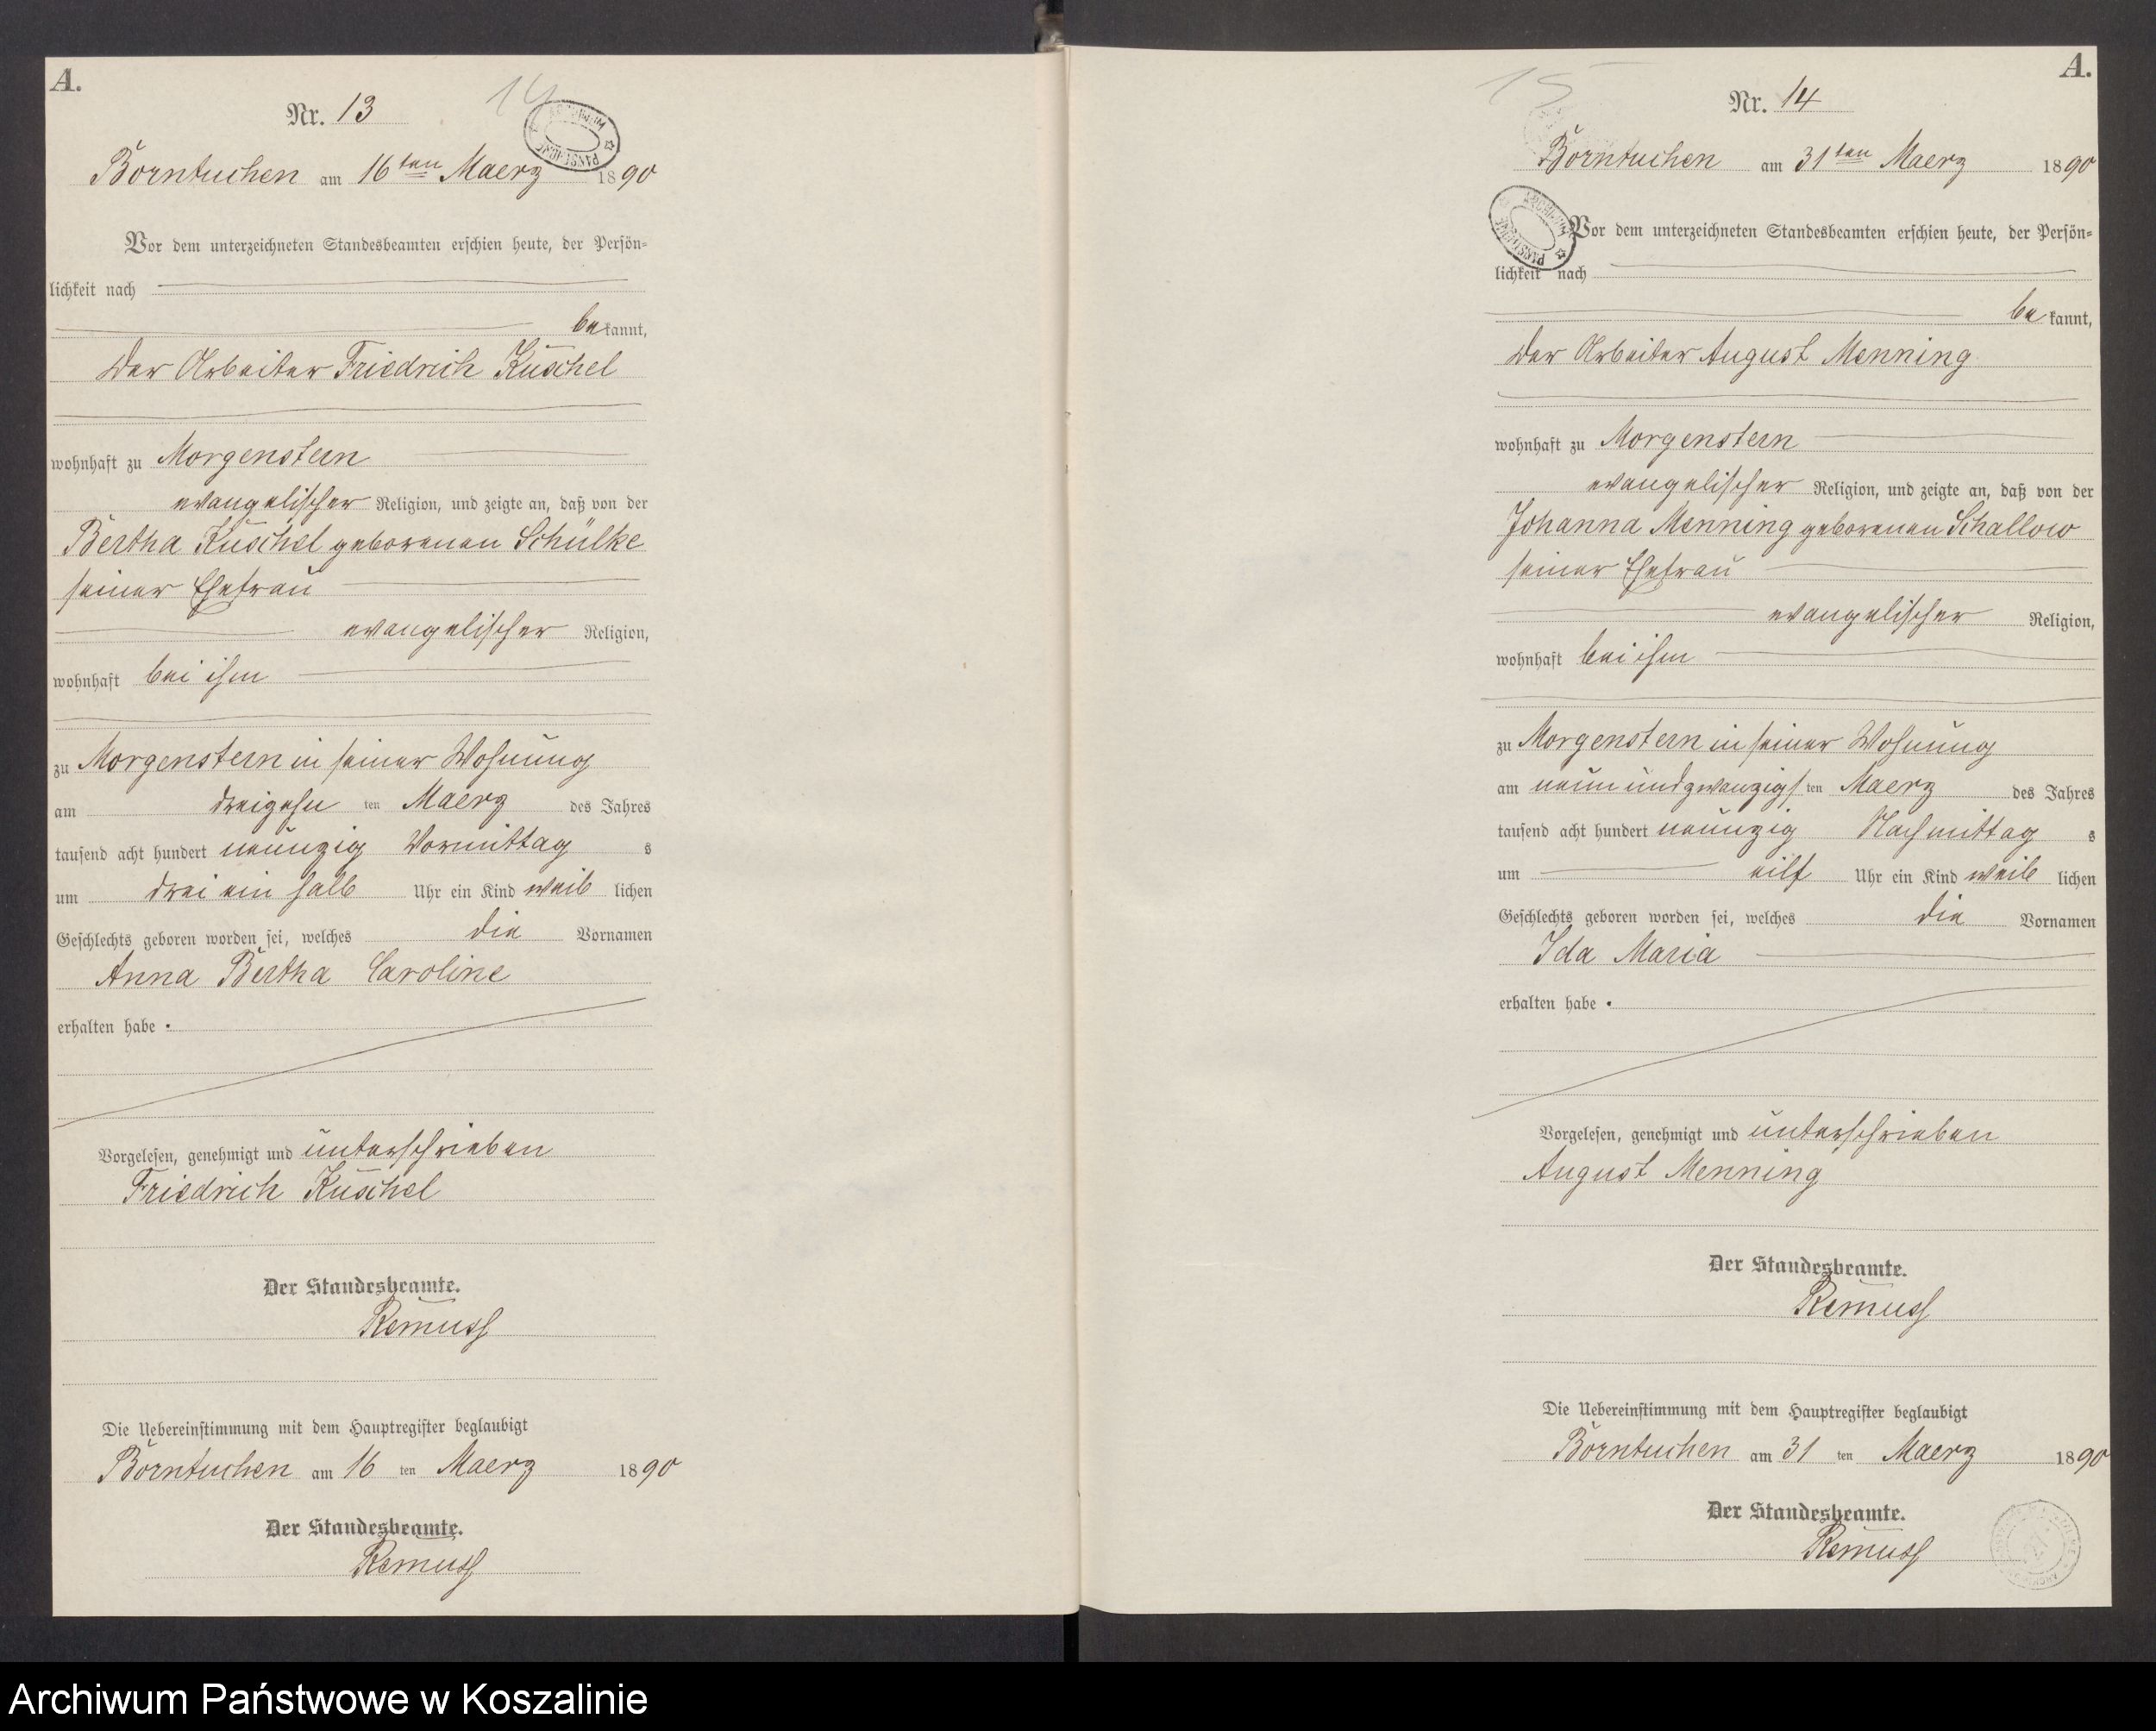 A.
Nr. 13
14
Borntuchen am 16ten Maerz 1890
Vor dem unterzeichneten Standesbeamten erschien heute, der Persön-
lichkeit nach
bekannt,
der Arbeiter Friedrich Kuschel
wohnhaft zu Morgenstern
evangelischer Religion, und zeigte an, daß von der
Bertha Kuschel geborenen Schülke
seiner Ehefrau
evangelischer Religion,
wohnhaft bei ihm
zu Morgenstern in seiner Wohnung
am dreizehn ten Maerz des Jahres
tausend acht hundert neunzig Vormittag s
um drei ein halb Uhr ein Kind weib lichen
Geschlechts geboren worden sei, welches die Vornamen
Anna Bertha Caroline
erhalten habe.
Vorgelesen, genehmigt und unterschrieben
Friedrich Kuschel
Der Standesbeamte.
Remuss
Die Uebereinstimmung mit dem Hauptregister beglaubigt
Borntuchen am 16 ten Maerz 1890
Der Standesbeamte.
Remuss
A.
15
Nr. 14
Borntuchen am 31ten Maerz 1890
Vor dem unterzeichneten Standesbeamten erschien heute, der Persön-
lichkeit nach
bekannt,
der Arbeiter August Menning
wohnhaft zu Morgenstern
evangelischer Religion, und zeigte an, daß von der
Johanna Menning geborenen Schallow
seiner Ehefrau
evangelischer Religion,
wohnhaft bei ihm
zu Morgenstern in seiner Wohnung
am neunundzwanzigs ten Maerz des Jahres
tausend acht hundert neunzig Nachmittag s
um eilf Uhr ein Kind weib lichen
Geschlechts geboren worden sei, welches die Vornamen
Ida Maria
erhalten habe.
Vorgelesen, genehmigt und unterschrieben
August Menning
Der Standesbeamte.
Remuss
Die Uebereinstimmung mit dem Hauptregister beglaubigt
Borntuchen am 31 ten Maerz 1890
Der Standesbeamte.
Remuss
Archiwum Państwowe w Koszalinie